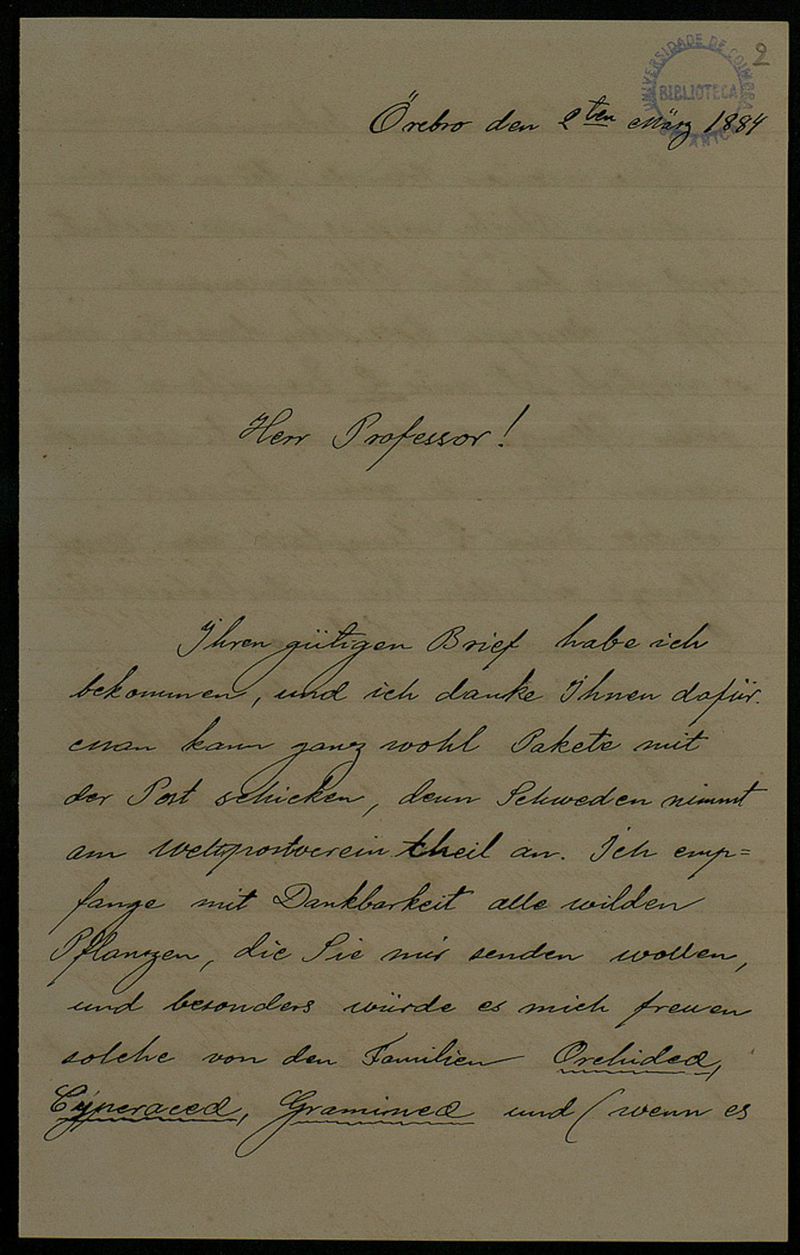 2
UNIVERSIDADE DE COIMBRA
BIBLIOTECA
Örebro den 2ten März 1884
Herr Professor!
Ihren gütigen Brief habe ich
bekommen, und ich danke Ihnen dafür.
Man kann ganz wohl Pakete mit
der Post schicken, denn Schweden nimmt
am Weltpostverein theil an. Ich emp=
fange mit Dankbarkeit alle wilden
Pflanzen, die Sie mir senden wollen,
und besonders würde es mich freuen
solche von den Familien Orchideæ,
Cyperaceæ, Gramineæ und (wenn es